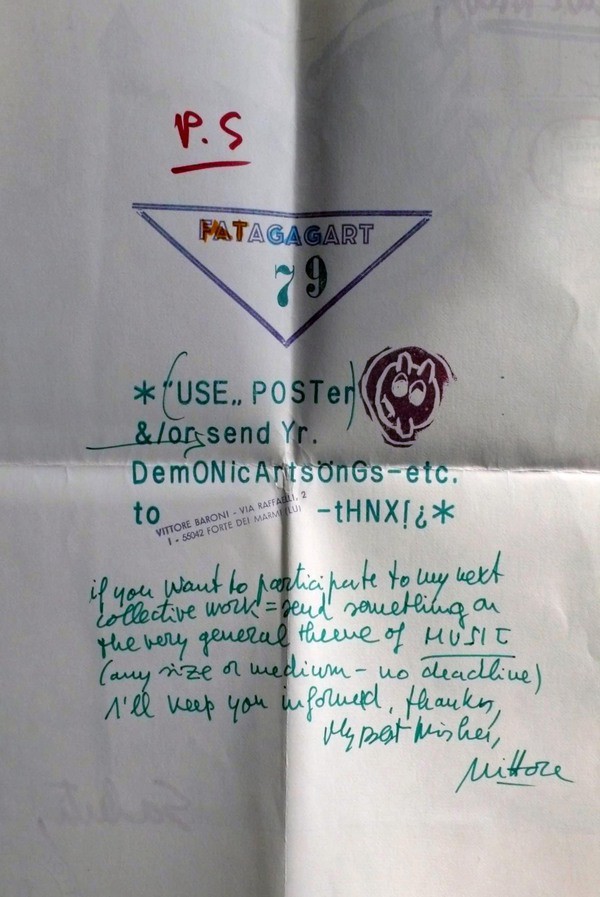 P.S
FATAGAGART
79
*("USE„ POSTer)
&/or send Yr.
DemONicArtsönGs-etc.
to VITTORE BARONI - VIA RAFFAELLI, 2 -tHNX!¿*
I - 55042 FORTE DEI MARMI (LU)
if you want to participate to my next
collective work = send something on
the very general theme of MUSIC
(any size or medium - no deadline)
I'll keep you informed, thanks,
My best Wishes,
Vittore
Saluti,